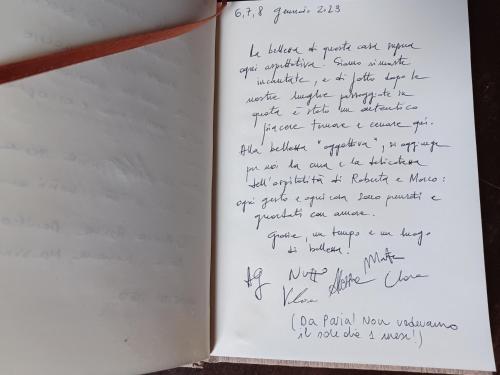 6,7,8 Gennaio 2023
La bellezza di questa casa supera
ogni aspettativa. Siamo rimaste
incantate, e di fatto dopo le
nostre lunghe passeggiate in
quota è stato un autentico
piacere tornare e cenare qui.
Alla bellezza "oggettiva", si aggiunge
per noi la cura e la delicatezza
dell'ospitalità di Roberta e Marco:
ogni gesto e ogni cosa sono pensati e
guardati con amore.
Grazie, un tempo e un luogo
di bellezza.
AG
Clara
(Da Pavia! Non vedevamo
il sole da 1 mese!)